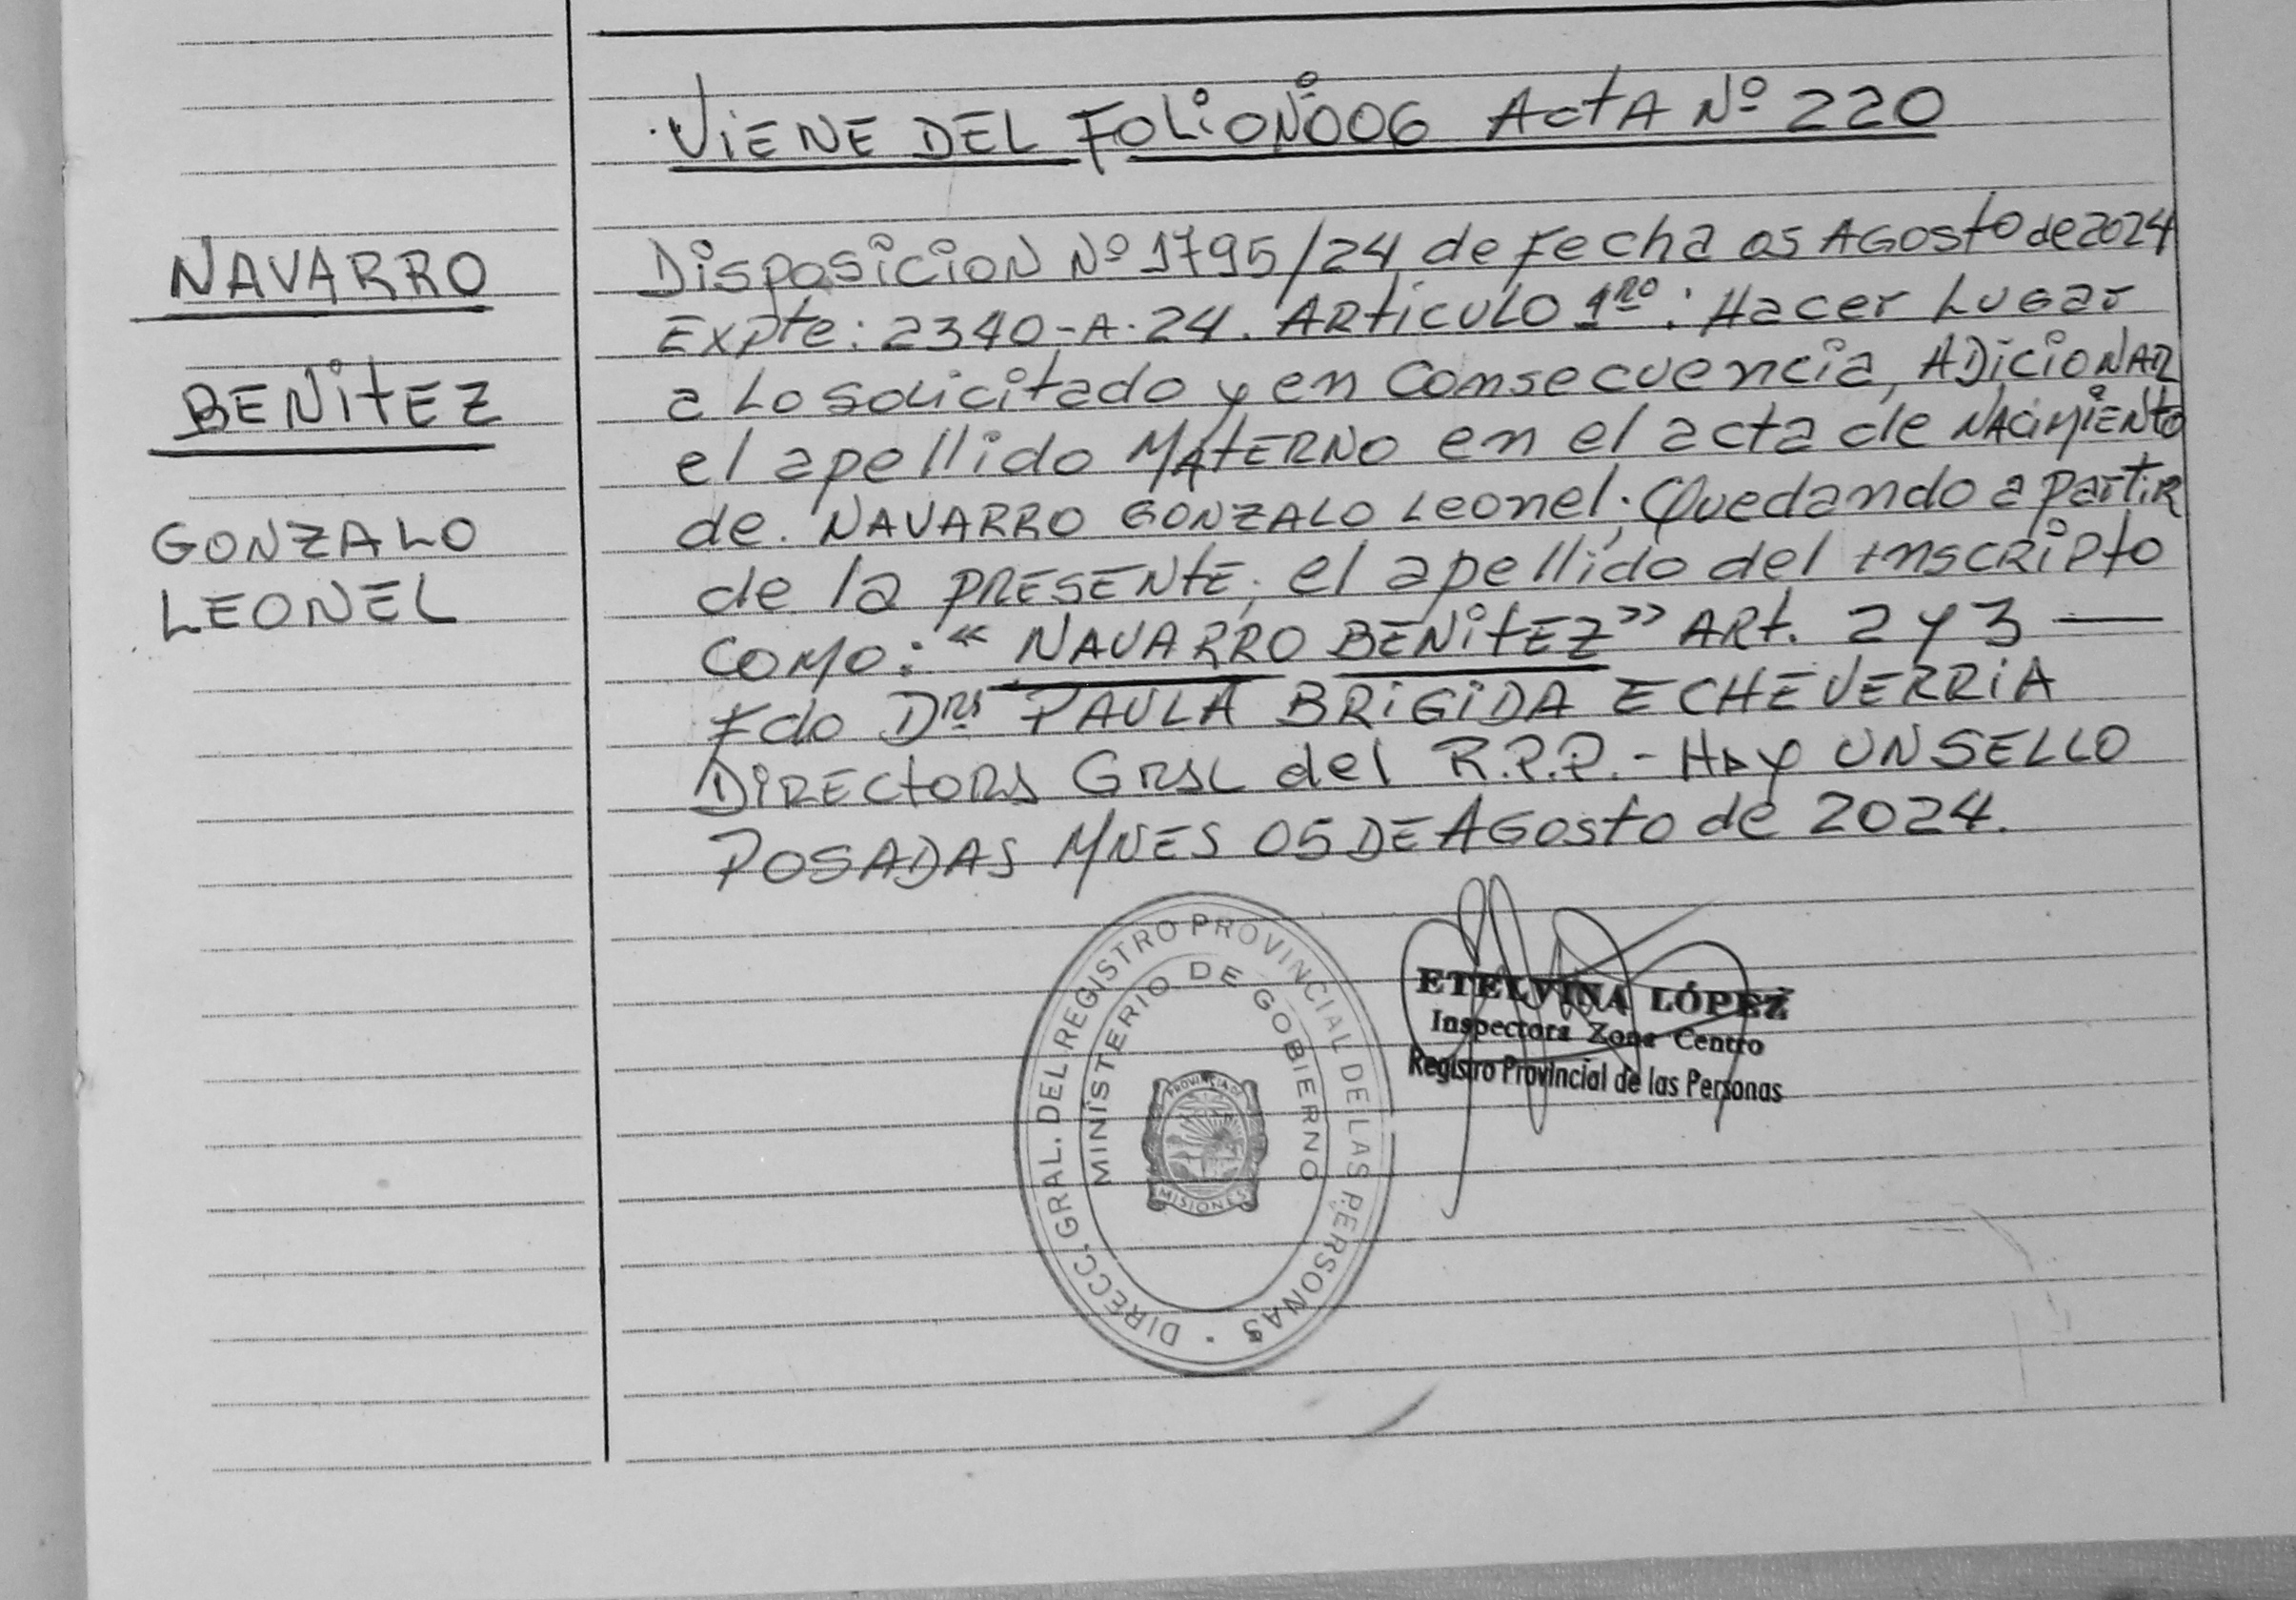 VIENE DEL FOLIO Nº 006 ACTA Nº 220
NAVARRO
BENITEZ
GONZALO
LEONEL
DISPOSICION Nº 1795/24 de Fecha 05 AGOSTO de 2024
EXPte: 2340-A-24. ARTICULO 1RO: Hacer LUGAR
a Lo solicitado y en Consecuencia, ADICIONAR
el apellido MATERNO en el acta de NACIMIENTO
de. NAVARRO GONZALO Leonel; Quedando a PARTIR
de la PRESENTE, el apellido del INSCRIPTO
COMO: "NAVARRO BENITEZ" ART. 2 Y 3 —
Fdo Dra PAULA BRIGIDA ECHEVERRIA
DIRECTORA GRAL del R.P.P.- HAY UN SELLO
POSADAS MNES 05 DE AGOSTO de 2024.
DIRECC. GRAL. DEL REGISTRO PROVINCIAL DE LAS PERSONAS
MINISTERIO DE GOBIERNO
PROVINCIA DE
MISIONES
ETELVINA LÓPEZ
Inspectora Zona Centro
Registro Provincial de las Personas